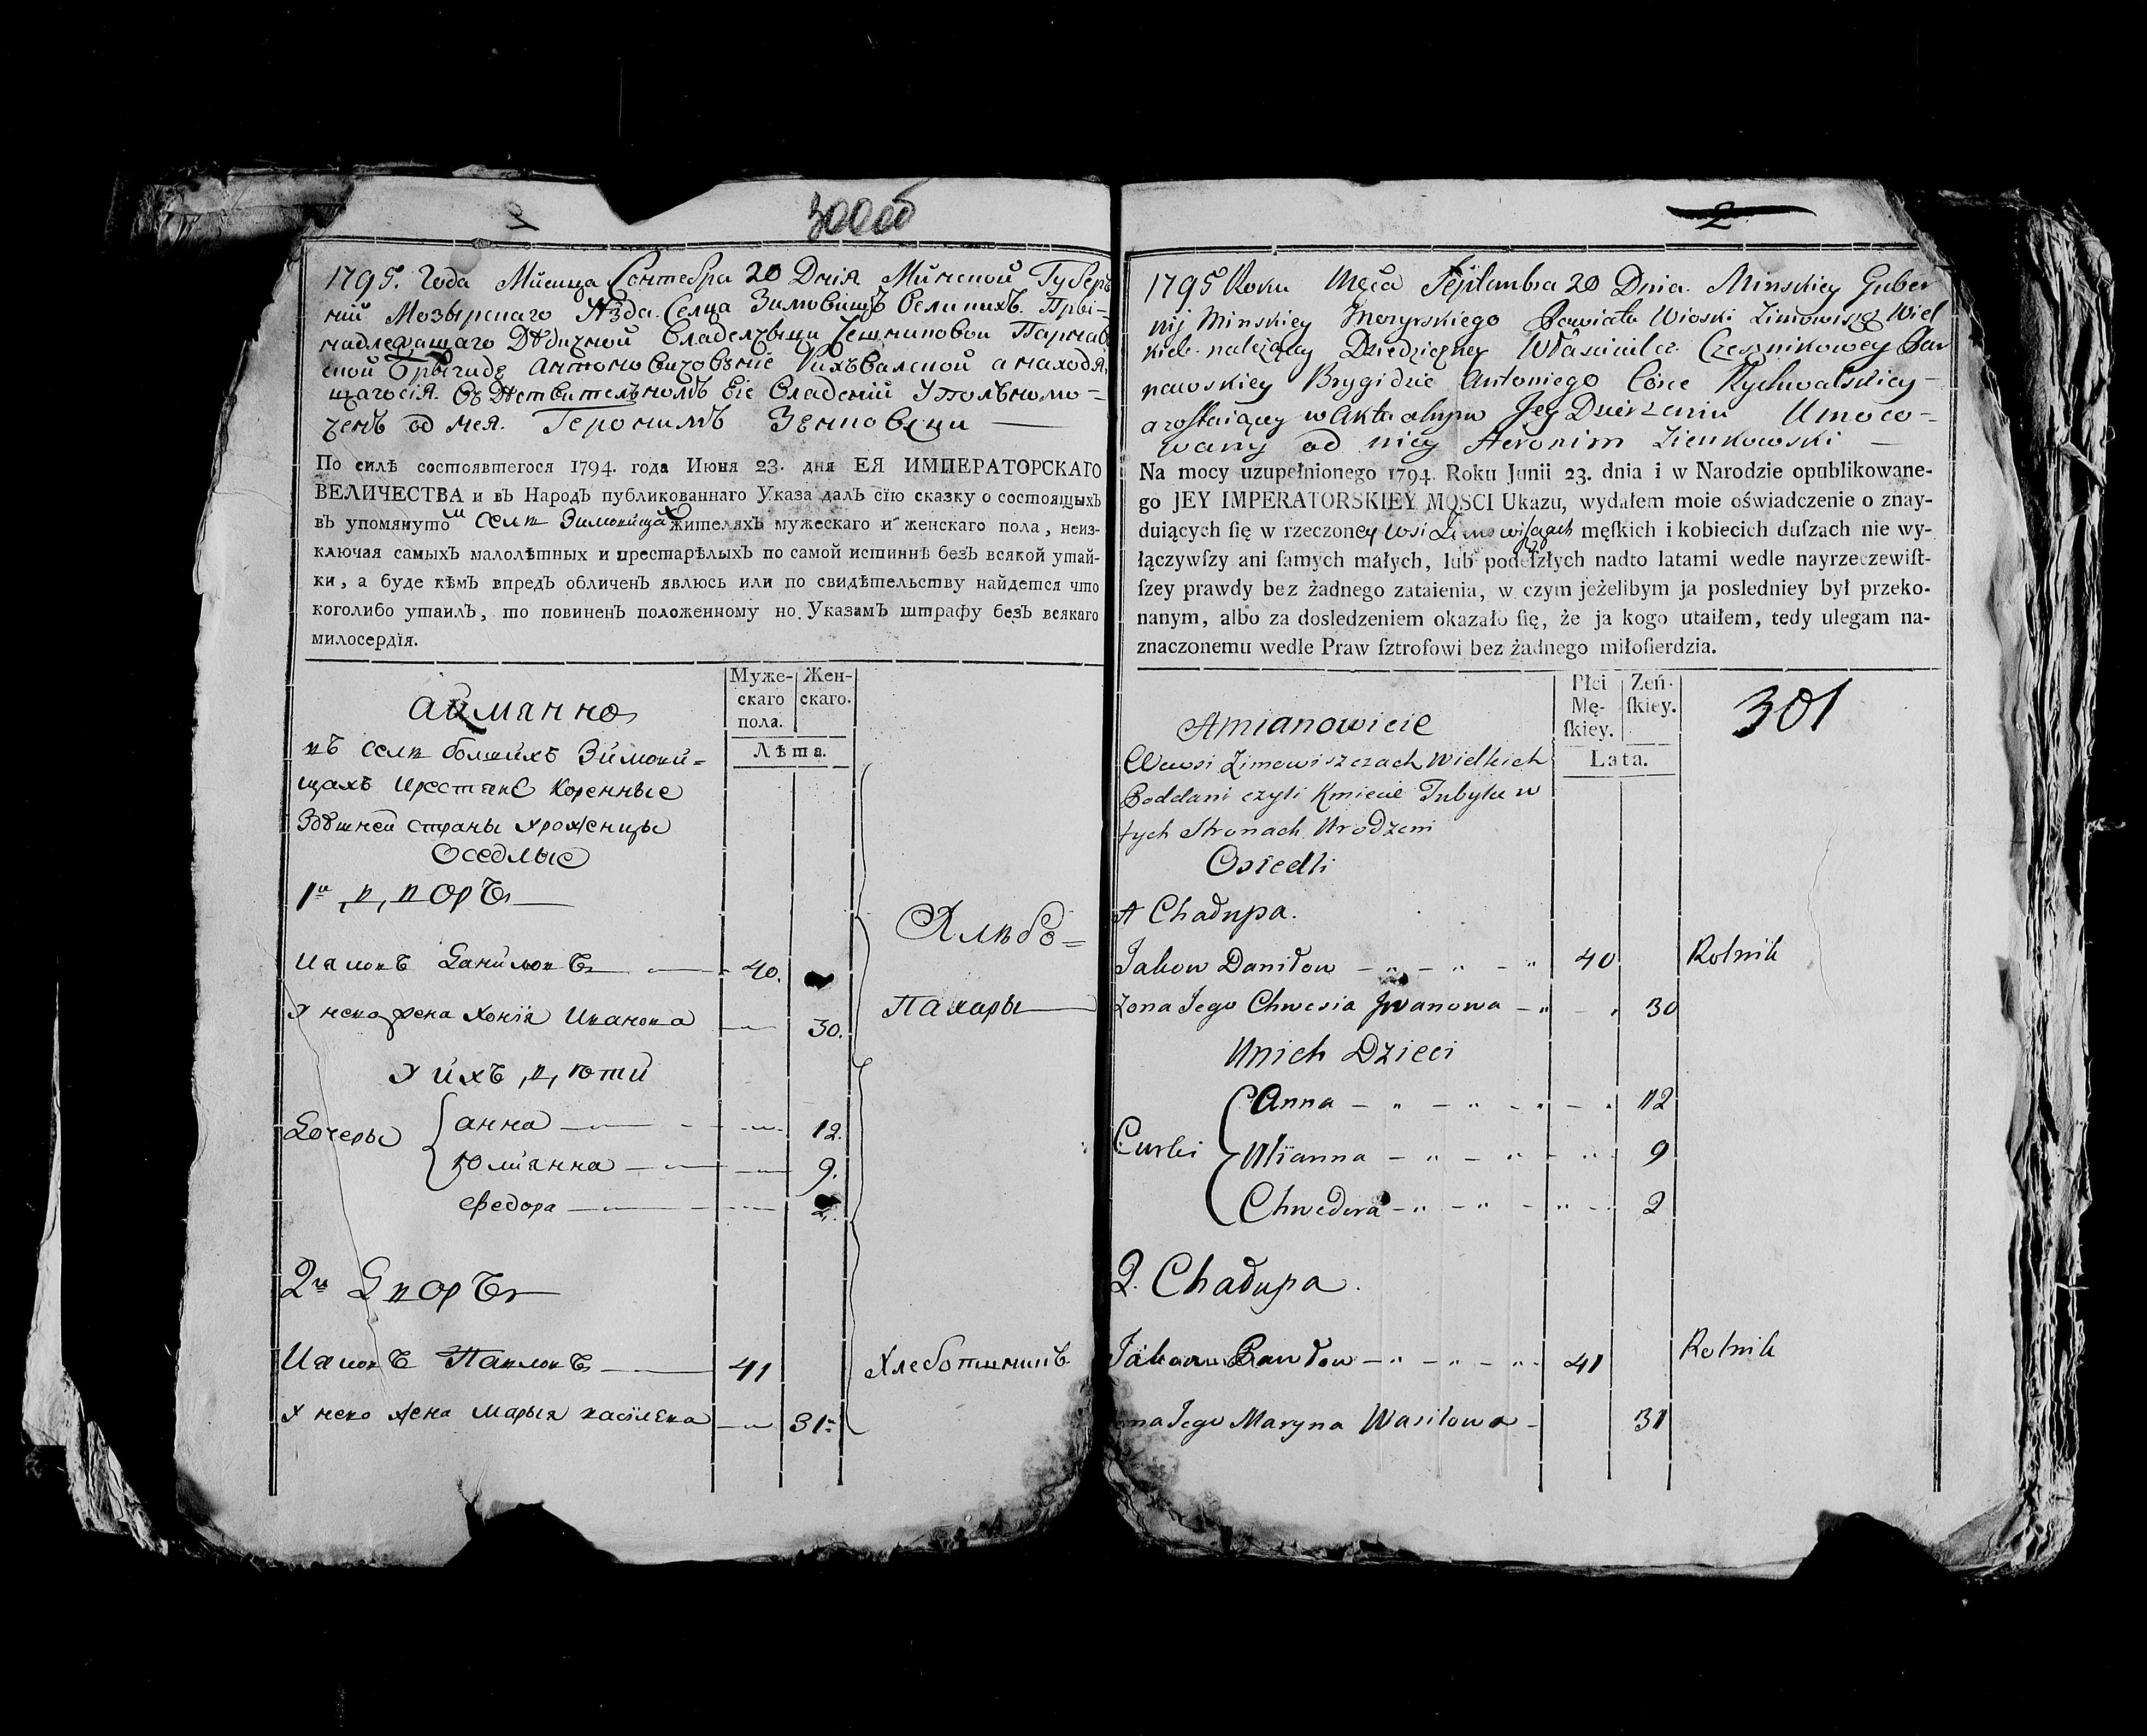 300об
1795. Года Мисица Сентебра 20 Днія Минской Губер
ніи Мозырскаго Уѣзда. Селца Зимовищъ Великихъ. При-
надлежащаго Дѣдичной Владелѣцы Чешниковои Парнав
ской Брыгидѣ Антоновичовѣніе Рихъвалской а находя
щагосія. въ Дѣствителъномъ Еіе Владеніи Уполъномо=
ченъ од Нея. Геронимъ Зенковски
По силѣ состоявшегося 1794. года Июня 23. дня ЕЯ ИМПЕРАТОРСКАГО
ВЕЛИЧЕСТВА и въ НародЪ публикованнаго Указа далЪ сїю сказку о состоящыхъ
въ упомянутом селѣ Зимовищахъ жителяхЪ мужескаго и женскаго пола, неиз-
ключая самыхЪ малолѣтных и престарѣлыхЪ по самой истиннѣ безЪ всякой утай-
ки, а буде кѣмЪ впредЪ обличенЪ явлюсь или по свидѣтельству найдется что
коголибо утаилЪ, то повиненЪ положенному но УказамЪ штрафу безЪ всякаго
милосердїя.
Муже-скаго пола.
Жен-скаго.
Лѣта.
Аимянно
въ селѣ болшихъ Зимови=
щахъ крестянѣ коренные
Здѣшней страны уроженцы
Оседлые
1й дворъ
Иаковъ Даниловъ 40.
У него жена Хвеня Иванова 30.
У ихъ дѣти
Дочеры анна 12.
Юлианна 9.
Федора 2.
Хлѣбо=
Пахары
2й Дворъ
Иаковъ Павловъ 41 Хлебопашецъ
У него жена Марыя василева 31
2
1795 Roku Męca Septembra 20 Dnia. Minskiey Guber
nij Minskiey Mozyrskiego Powiatu Wioski Zimowiszcz Wiel
kich należącey Dziedziczney Właścicielce Czesnikowey Par
nawskiey Brygidzie Antoniego Córce Rychwalskiey
a zostaiącey w Aktualnym Jey Dzierżeniu Umoco-
wany od niey Heronim Zienkowski
Na mocy uzupełnionego 1794. Roku Junii 23. dnia i w Narodzie opublikowane-
go JEY IMPERATORSKIEY MOSCI Ukazu, wydałem moie oświadczenie o znay-
duiących ſię w rzeczoney wsi Zimowiszczach męſkich i kobiecich duſzach nie wy-
łączywſzy ani ſamych małych, lub podeſzłych nadto latami wedle nayrzeczewiſt-
ſzey prawdy bez żadnego zataienia, w czym jeżelibym ja posledniey był przeko-
nanym, albo za dosledzeniem okazało ſię, że ja kogo utaiłem, tedy ulegam na-
znaczonemu wedle Praw ſztrofowi bez żadnego miłoſierdzia.
Płci Mę-ſkiey.
Zeń-ſkiey.
Lata.
301
Amianowicie
We wsi Zimowiszczach Wielkich
Poddani czyli Kmiecie Tubylcy w
tych Stronach Urodzeni
Osiedli
1 Chałupa.
Jakow Daniłow 40 Rolnik
Zona Jego Chwesia Jwanowa 30
U nich Dzieci
Curki Anna 12
Ulianna 9
Chwedora 2
2. Chałupa.
Jakow Pawłow 41 Rolnik
ona Jego Maryna Wasilowa 31